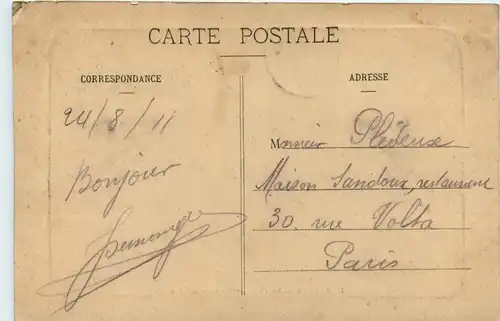 CARTE POSTALE
CORRESPONDANCE
24/8/11
Bonjour
ADRESSE
Monsieur
Maison Sandoux, restaurant
30. rue Volta
Paris